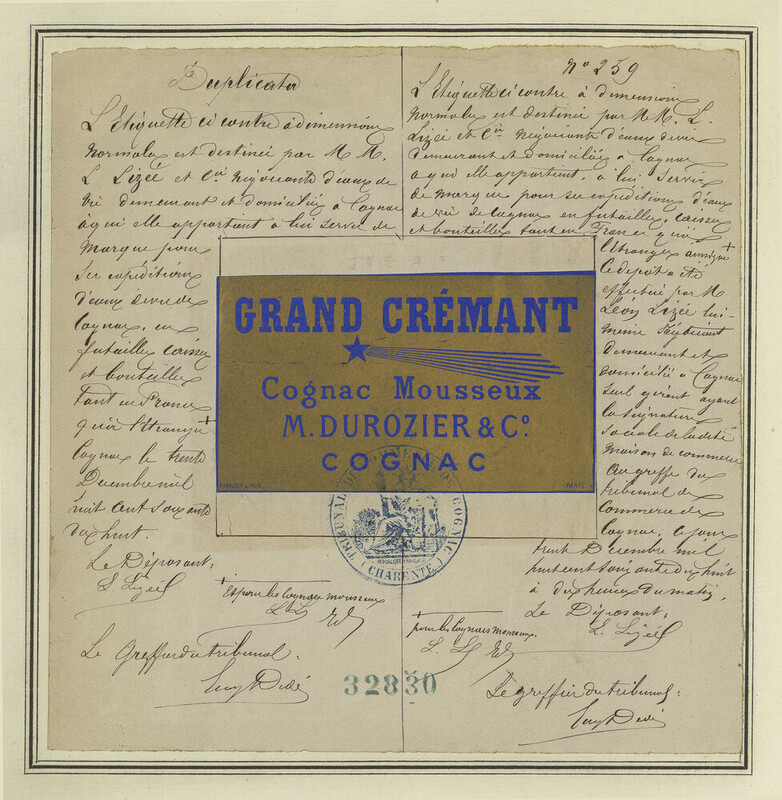 Duplicata
L'Etiquette ci contre à dimensions
Normales est destinée par M M.
L Lizée et Cie Négociants d'eaux de
vie demeurant et domiciliés à Cognac
à qui elle appartient à lui servir de
Marque pour
ses expéditions
d'eaux de vie de
Cognac, en
futailles caisses
et bouteilles
tant en France
qu'à l'étranger +
Cognac le trente
Décembre mil
huit cent soixante
dix huit.
Le Déposant,
L. Lizée
+ et pour les Cognacs mousseux
L. L.
Le Greffier du tribunal.
No 259
L'Etiquette ci contre à dimensions
Normales est destinée par M M. L.
Lizée et Cie Négociants d'eaux de vie
demeurant et domiciliés à Cognac
à qui elle appartient, à lui servir
de marque pour ses expéditions d'eaux
de vie de Cognac en futailles, caisses
et bouteilles tant en France qu'à
l'étranger +
Ce dépôt a été
effectué par M
Léon Lizée lui-
même Négociant
demeurant et
domicilié à Cognac
seul gérant ayant
la signature
sociale de la dite
maison de commerce
Au greffe du
tribunal de
Commerce de
Cognac, ce jour
trente Décembre mil
huit cent soixante dix huit
à dix heures du matin.
Le Déposant,
L. Lizée
+ pour les Cognacs mousseux.
L. L.
Le greffier du tribunal.
GRAND CRÉMANT
Cognac Mousseux
M. DUROZIER & Co.
COGNAC
PARIS
TRIBUNAL DE COMMERCE DE COGNAC
(CHARENTE)
32830